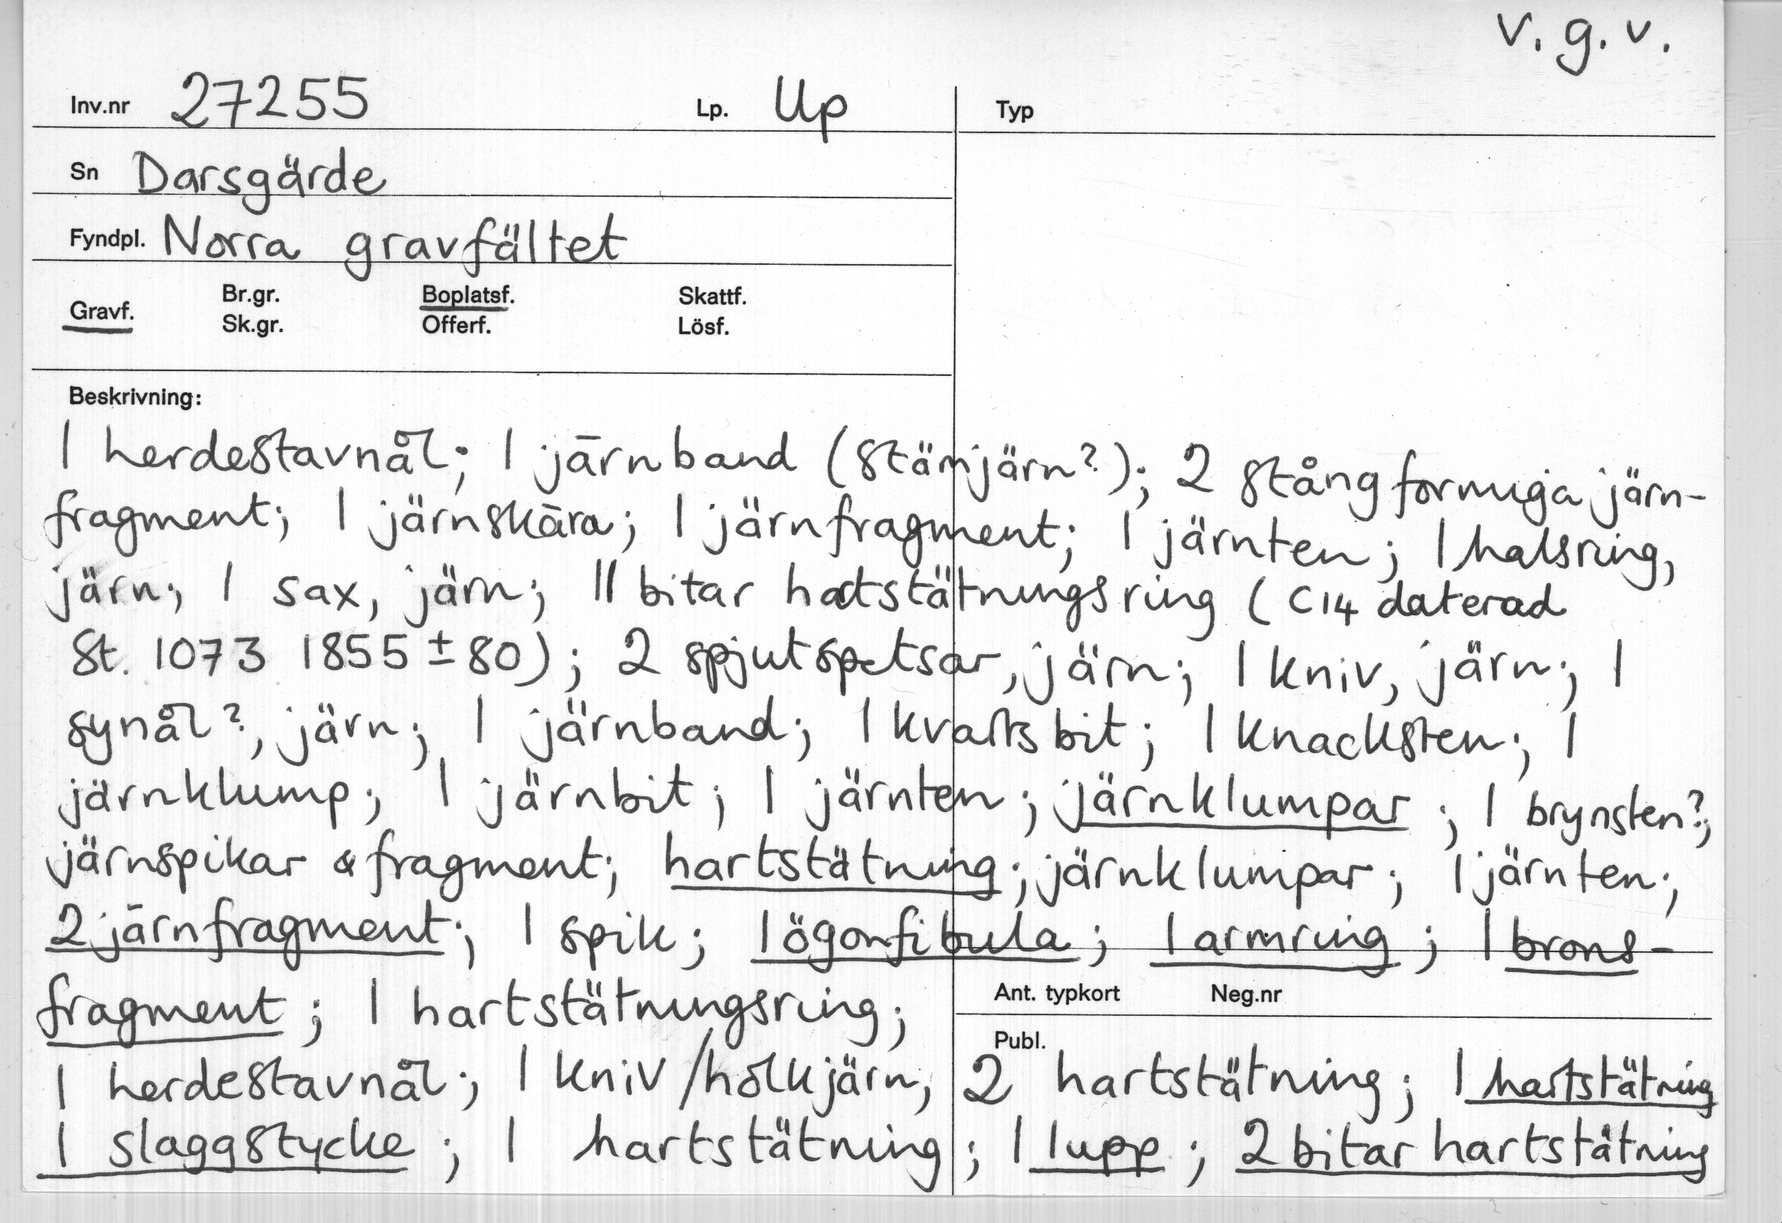 v. g. v.
Inv.nr 27255 Lp. Up Typ
Sn Darsgärde
Fyndpl. Norra gravfältet
Br.gr. Boplatsf. Skattf.
Gravf.
Sk.gr. Offerf. Lösf.
Beskrivning:
1 herdestavnål; 1 järnband (stämjärn?); 2 stångformiga järn-
fragment; 1 järnskära; 1 järnfragment; 1 järnten; 1 halsring,
järn; 1 sax, järn; 11 bitar hartstätningsring (C14 daterad
St. 1073 1855 ± 80); 2 spjutspetsar, järn; 1 kniv, järn; 1
synål?, järn; 1 järnband; 1 kvartsbit; 1 knacksten; 1
järnklump; 1 järnbit; 1 järnten; järnklumpar; 1 brynsten?;
järnspikar & fragment; hartstätning; järnklumpar; 1 järnten;
2 järnfragment; 1 spik; 1 ögonfibula; 1 armring; 1 brons-
fragment; 1 hartstätningsring;
Ant. typkort Neg.nr
Publ.
1 herdestavnål; 1 kniv/holkjärn; 2 hartstätning; 1 hartstätning
1 slaggstycke; 1 hartstätning; 1 lupp; 2 bitar hartstätning